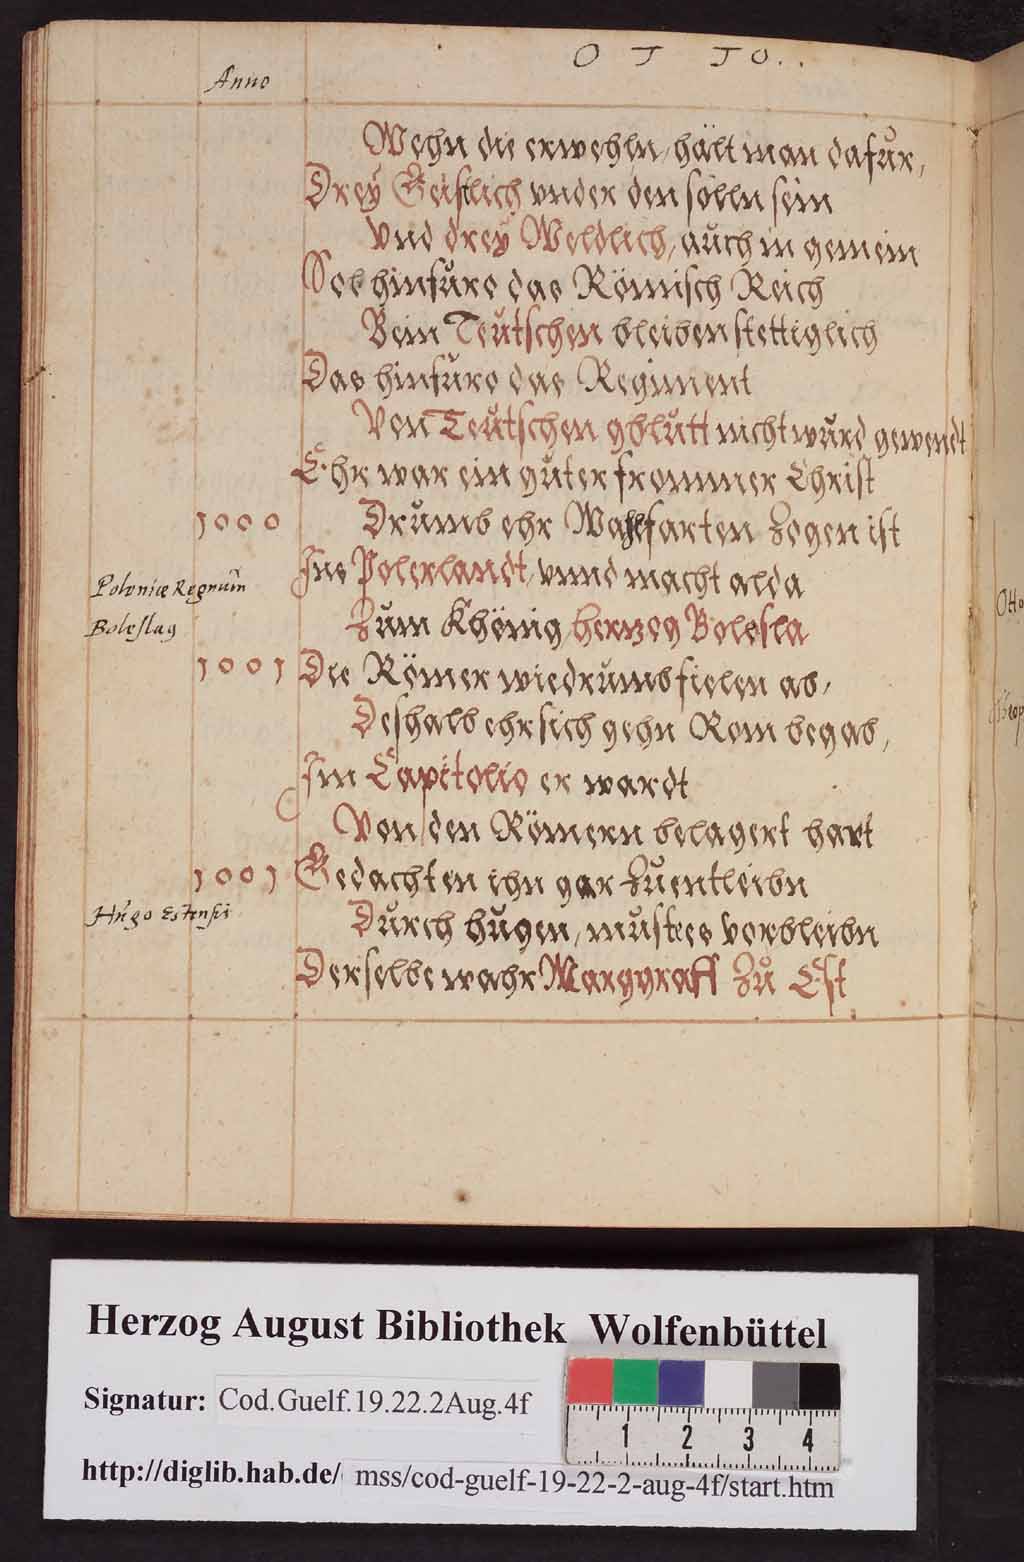 O T T O . .
Anno
Wehn die erwehln, hält man dafür,
Dreÿ Geistlich vnder den solln sein
Vnd dreÿ Weldlich, auch in gemein
Sol hinfüro das Römisch Reich
Beim Teutschen bleiben stettiglich
Das hinfüro das Regiment
Von Teutschen gblütt nicht würd gewendt
Ehr war ein guter frommer Christ
1000 Drumb ehr Wahlfarten Zogen ist
Ins Polerlandt, vnnd macht alda
Poloniæ Regnum
Zum Khönig herzog Bolesla
Boleslag
1001 Die Römer wiedrumb fielen ab,
Deshalb ehr sich gehn Rom begab,
Im Capitolio er wardt
Von den Römern belagert hart
1001 Gedachten ihn gar Zuentleibn
Hugo Estensis
Durch Hugen, muste es verbleibn
Derselbe wahr Marggraff Zu Est
Otto
Herzog August Bibliothek Wolfenbüttel
Signatur: Cod.Guelf.19.22.2Aug.4f
1 2 3 4
http://diglib.hab.de/ mss/cod-guelf-19-22-2-aug-4f/start.htm